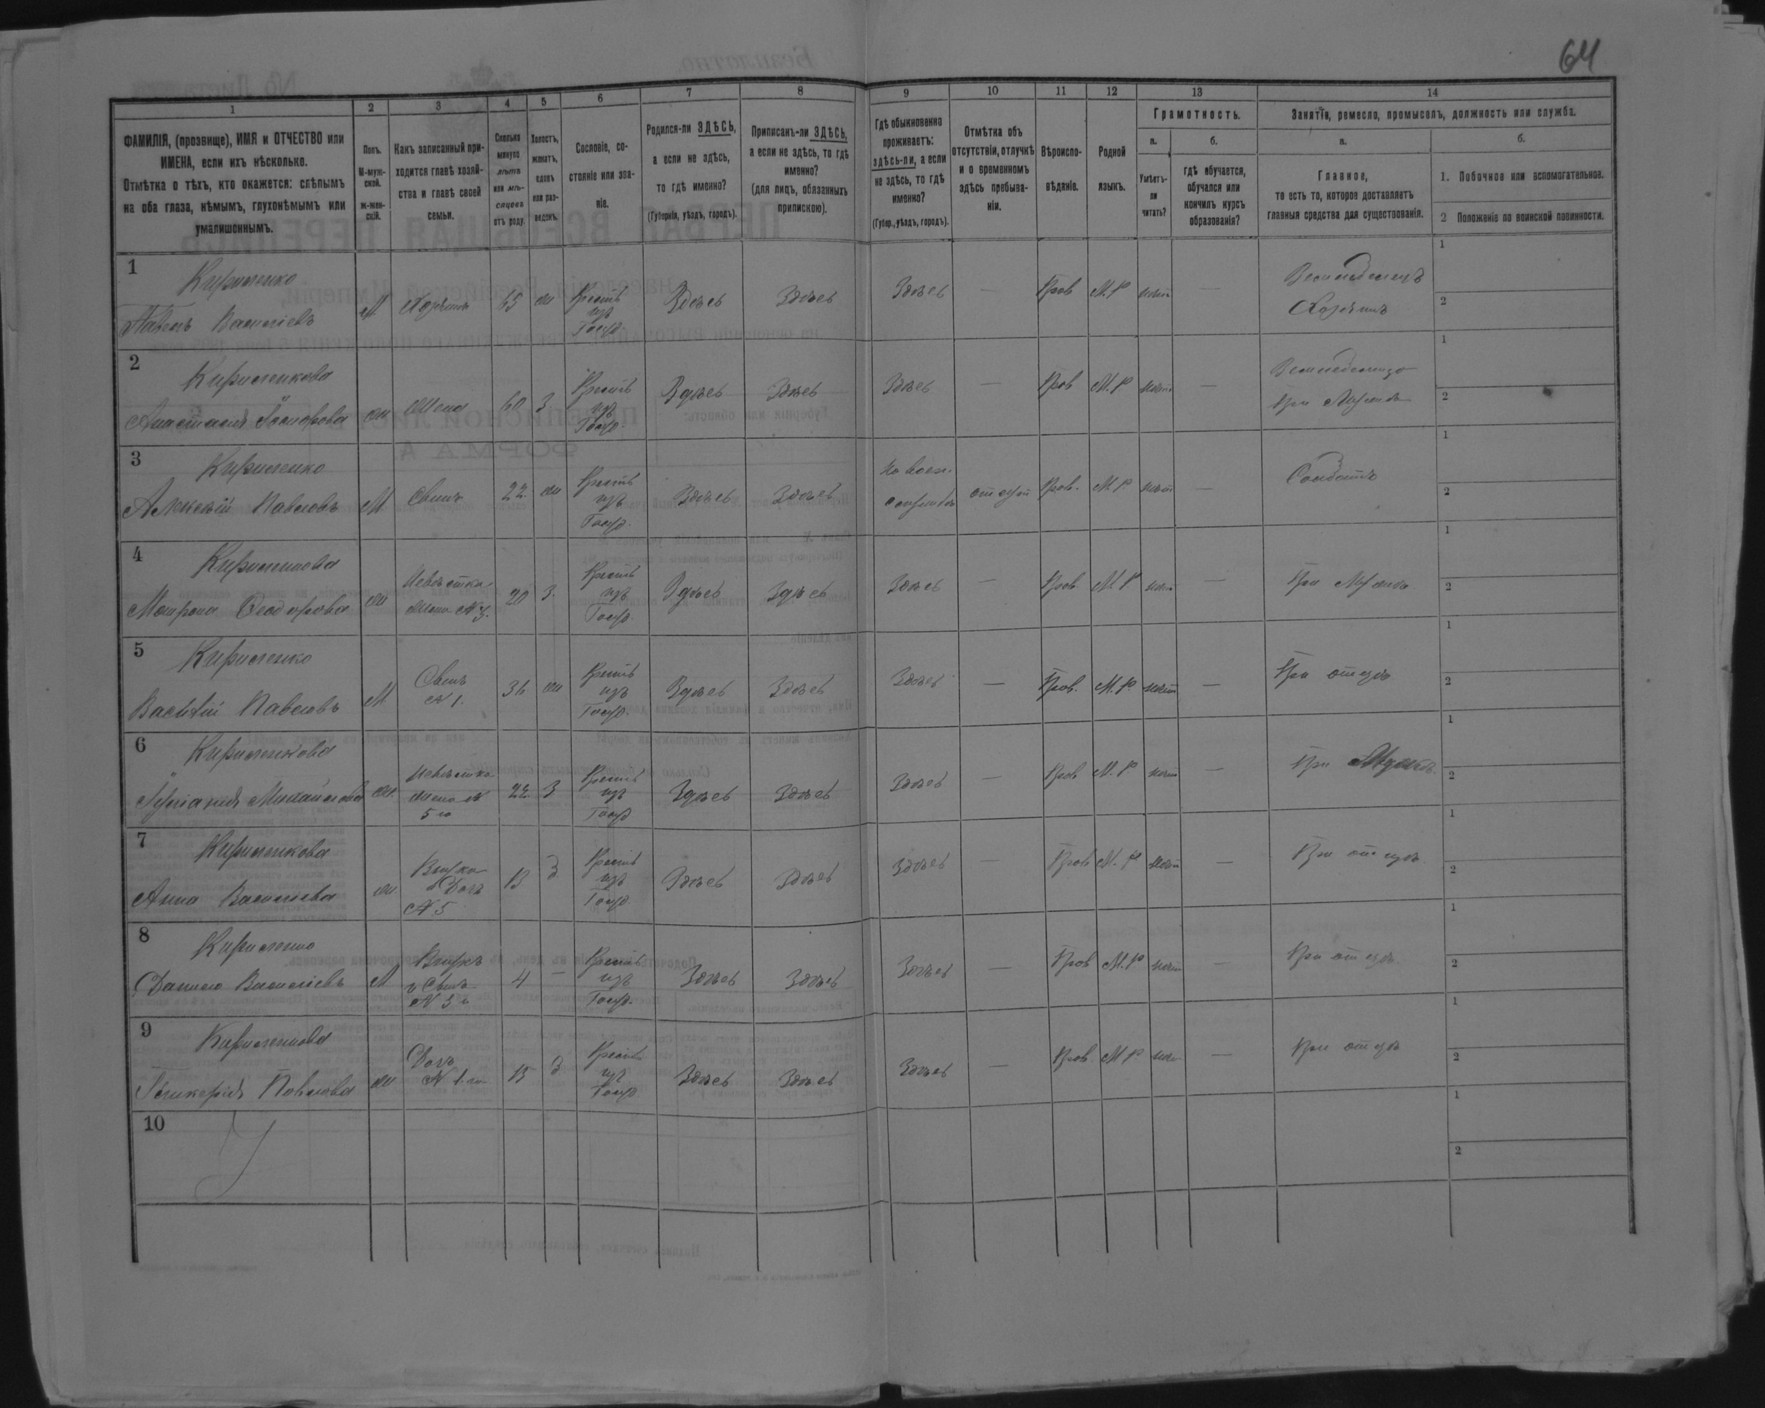 64
1
2
3
4
5
6
7
8
9
10
11
12
13
14
ФАМИЛІЯ, (прозвище), ИМЯ и ОТЧЕСТВО или
ИМЕНА, если ихъ нѣсколько.
Отмѣтка о тѣхъ, кто окажется: слѣпымъ
на оба глаза, нѣмымъ, глухонѣмымъ или
умалишоннымъ.
Полъ.
М-муж-
ской.
ж-жен-
скій.
Какъ записанный при-
ходится главѣ хозяй-
ства и главѣ своей
семьи.
Сколько
минуло
лѣтъ
или мѣ-
сяцевъ
отъ роду.
Холостъ,
женатъ,
вдовъ
или раз-
веденъ.
Сословіе, со-
стояніе или зва-
ніе.
Родился-ли ЗДѢСЬ,
а если не здѣсь,
то гдѣ именно?
(Губернія, уѣздъ, городъ).
Приписанъ-ли ЗДѢСЬ,
а если не здѣсь, то гдѣ
именно?
(для лицъ, обязанныхъ
припискою).
Гдѣ обыкновенно
проживаетъ:
здѣсь-ли, а если
не здѣсь, то гдѣ
именно?
(Губер., уѣздъ, городъ).
Отмѣтка объ
отсутствіи, отлучкѣ
и о временномъ
здѣсь пребыва-
ніи.
Вѣроиспо-
вѣданіе.
Родной
языкъ.
Грамотность.
а.
Умѣетъ-
ли
читать?
б.
гдѣ обучается,
обучался или
кончилъ курсъ
образованія?
Занятіе, ремесло, промыселъ, должность или служба.
а.
Главное,
то есть то, которое доставляетъ
главныя средства для существованія.
б.
1. Побочное или вспомогательное.
2 Положеніе по воинской повинности.
1
Кириченко
Павелъ Васильевъ
М Хозяинъ 65 ж Крестъ изъ Госуд. Здѣсь Здѣсь Здѣсь — Прав М.Р нѣтъ —
Хозяинъ
1
2
2
Кириченкова
ж Жена 60 З Крестъ изъ Госуд. Здѣсь Здѣсь Здѣсь — Прав М.Р нѣтъ —
1
2
3
Кириченко
Алексѣй Павловъ
М Сынъ 22 ж Крестъ изъ Госуд. Здѣсь Здѣсь Прав. М.Р нѣтъ —
Солдатъ
1
2
4
Кириченкова
Матрона Феодорова
ж Невѣстка 20 З. Крестъ изъ Госуд. Здѣсь Здѣсь Здѣсь — Прав М.Р нѣтъ —
При Мужѣ
1
2
5
Кириченко
Василій Павловъ
М Сынъ N 1. ж Крестъ изъ Госуд. Здѣсь Здѣсь Здѣсь — Прав. М.Р нѣтъ —
При отцѣ
1
2
6
Кириченкова
Михайлова
ж Невѣстка 22 З Крестъ изъ Госуд Здѣсь Здѣсь Здѣсь — Прав М.Р нѣтъ —
При Мужѣ
1
2
7
Кириченкова
Анна Васильева
ж Внучка Дочь N 5 З Крестъ изъ Госуд Здѣсь Здѣсь Здѣсь — Прав М.Р нѣтъ —
При отцѣ
1
2
8
Кириченко
Данило Васильевъ
М Внукъ 4 — Крестъ изъ Госуд. Здѣсь Здѣсь Здѣсь — Прав М.Р нѣтъ —
При отцѣ
1
2
9
Кириченкова
Гликерія Павлова
ж Дочь N 1 го З Крестъ изъ Госуд Здѣсь Здѣсь Здѣсь — Прав М.Р нѣтъ —
При отцѣ
1
2
10
1
2